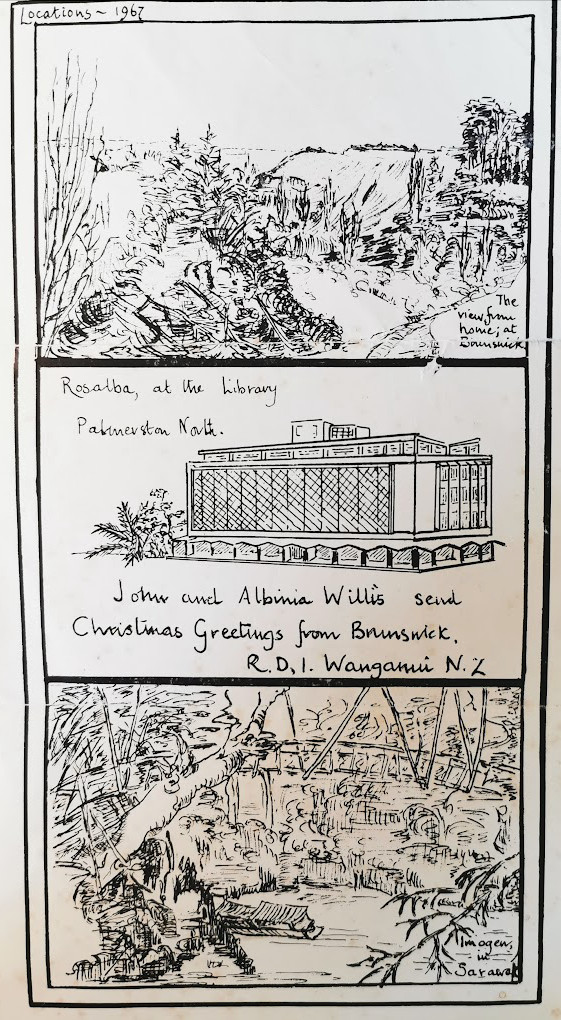 Locations ~ 1967
The
view from
home; at
Brunswick
Rosalba, at the Library
Palmerston North.
John and Albinia Willis send
Christmas Greetings from Brunswick,
R.D.1. Wanganui N.Z
Imogen,
in
Sarawak